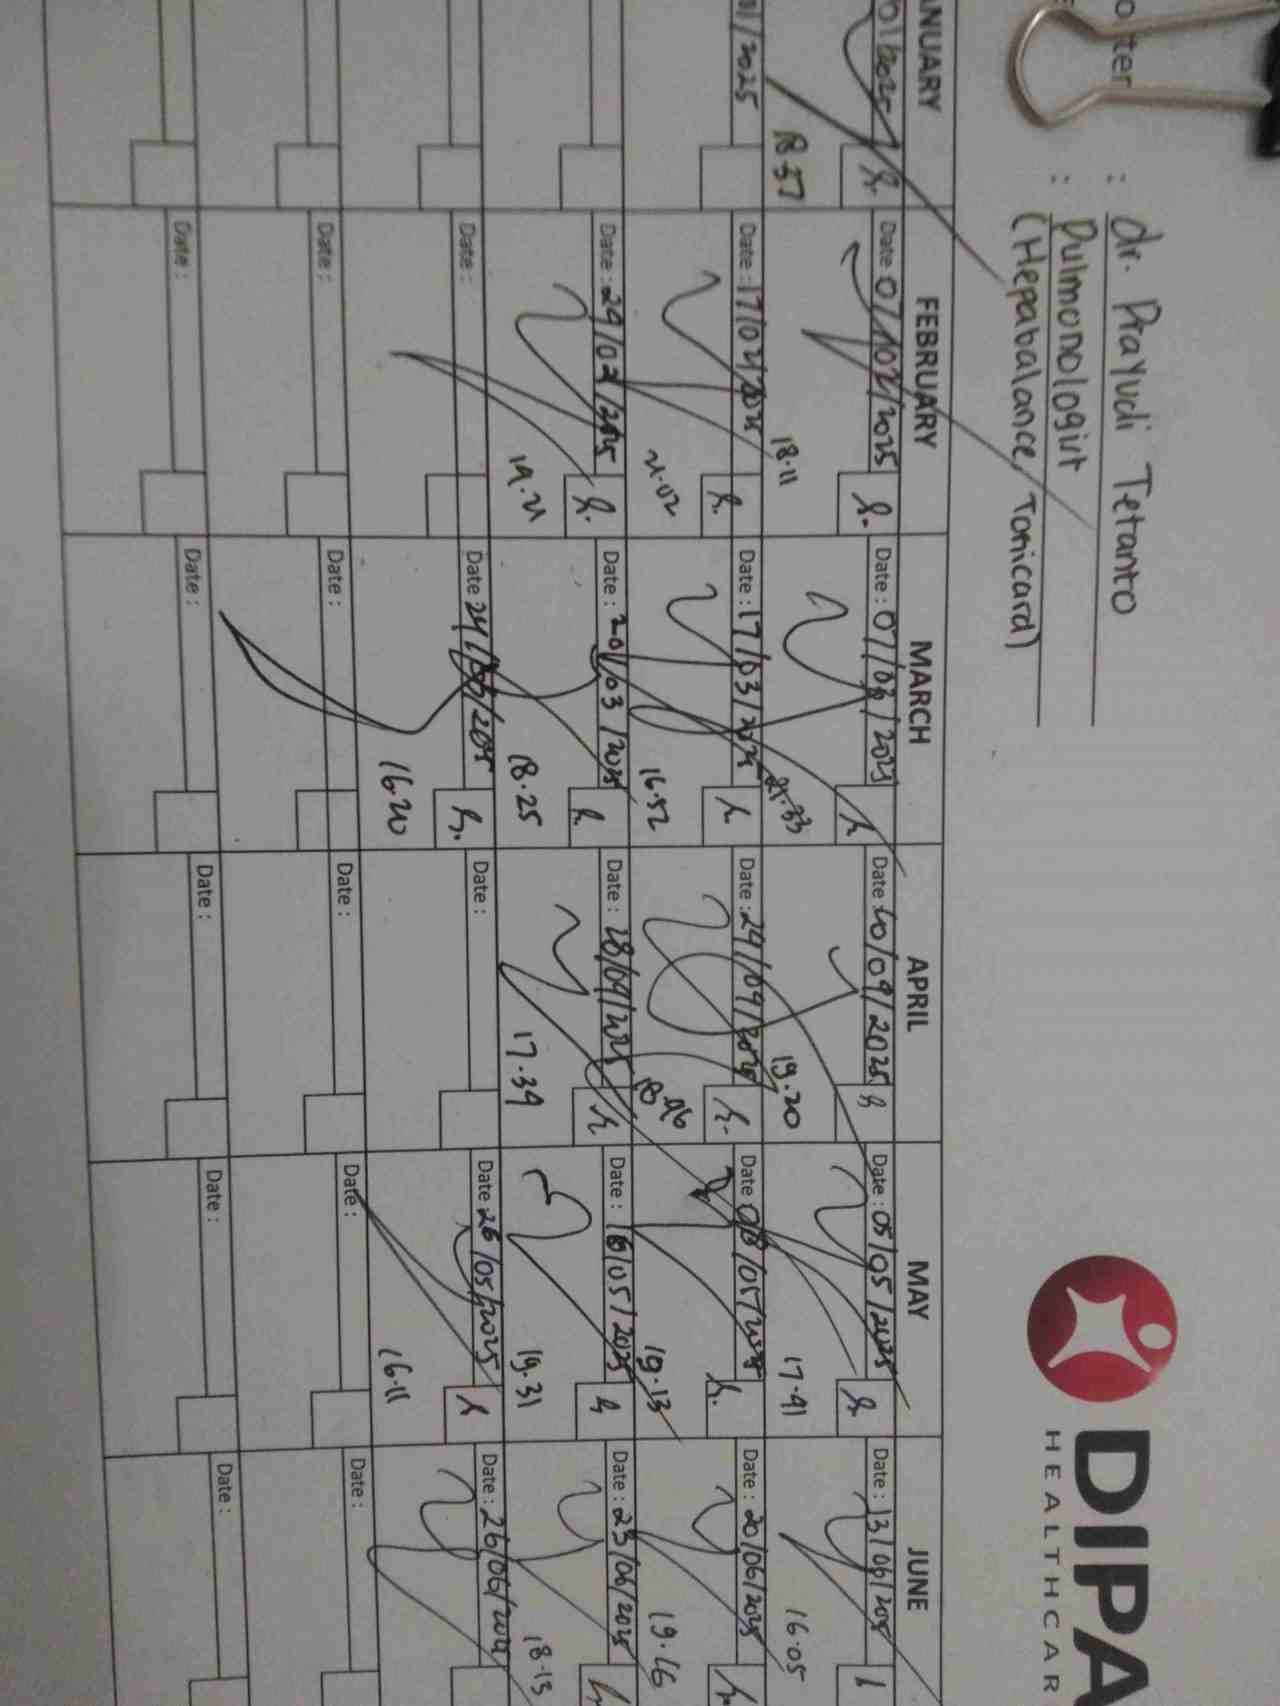 : dr. Prayudi Tetanto
: Pulmonologist
(Hepabalance, Tonicard)
DIPA
HEALTHCAR
ANUARY FEBRUARY MARCH APRIL MAY JUNE
Date: 07/02/2025 Date: 07/03/2025 Date: 10/04/2025 Date: 05/05/2025 Date: 13/06/2025
18.57 18.11 21.33 19.20 17.41 16.05
01/2025 Date: 17/02/2025 Date: 17/03/2025 Date: 24/04/2025 Date: 08/05/2025 Date: 20/06/2025
21.02 16.52 19.13 19.16
Date: 24/02/2025 Date: 20/03/2025 Date: 28/04/2025 Date: 16/05/2025 Date: 23/06/2025
19.21 18.25 17.34 19.31 18.13
Date: Date: 24/03/2025 Date: Date: 26/05/2025 Date: 26/06/2025
16.20 16.11
Date: Date: Date: Date: Date:
Date: Date: Date: Date: Date: